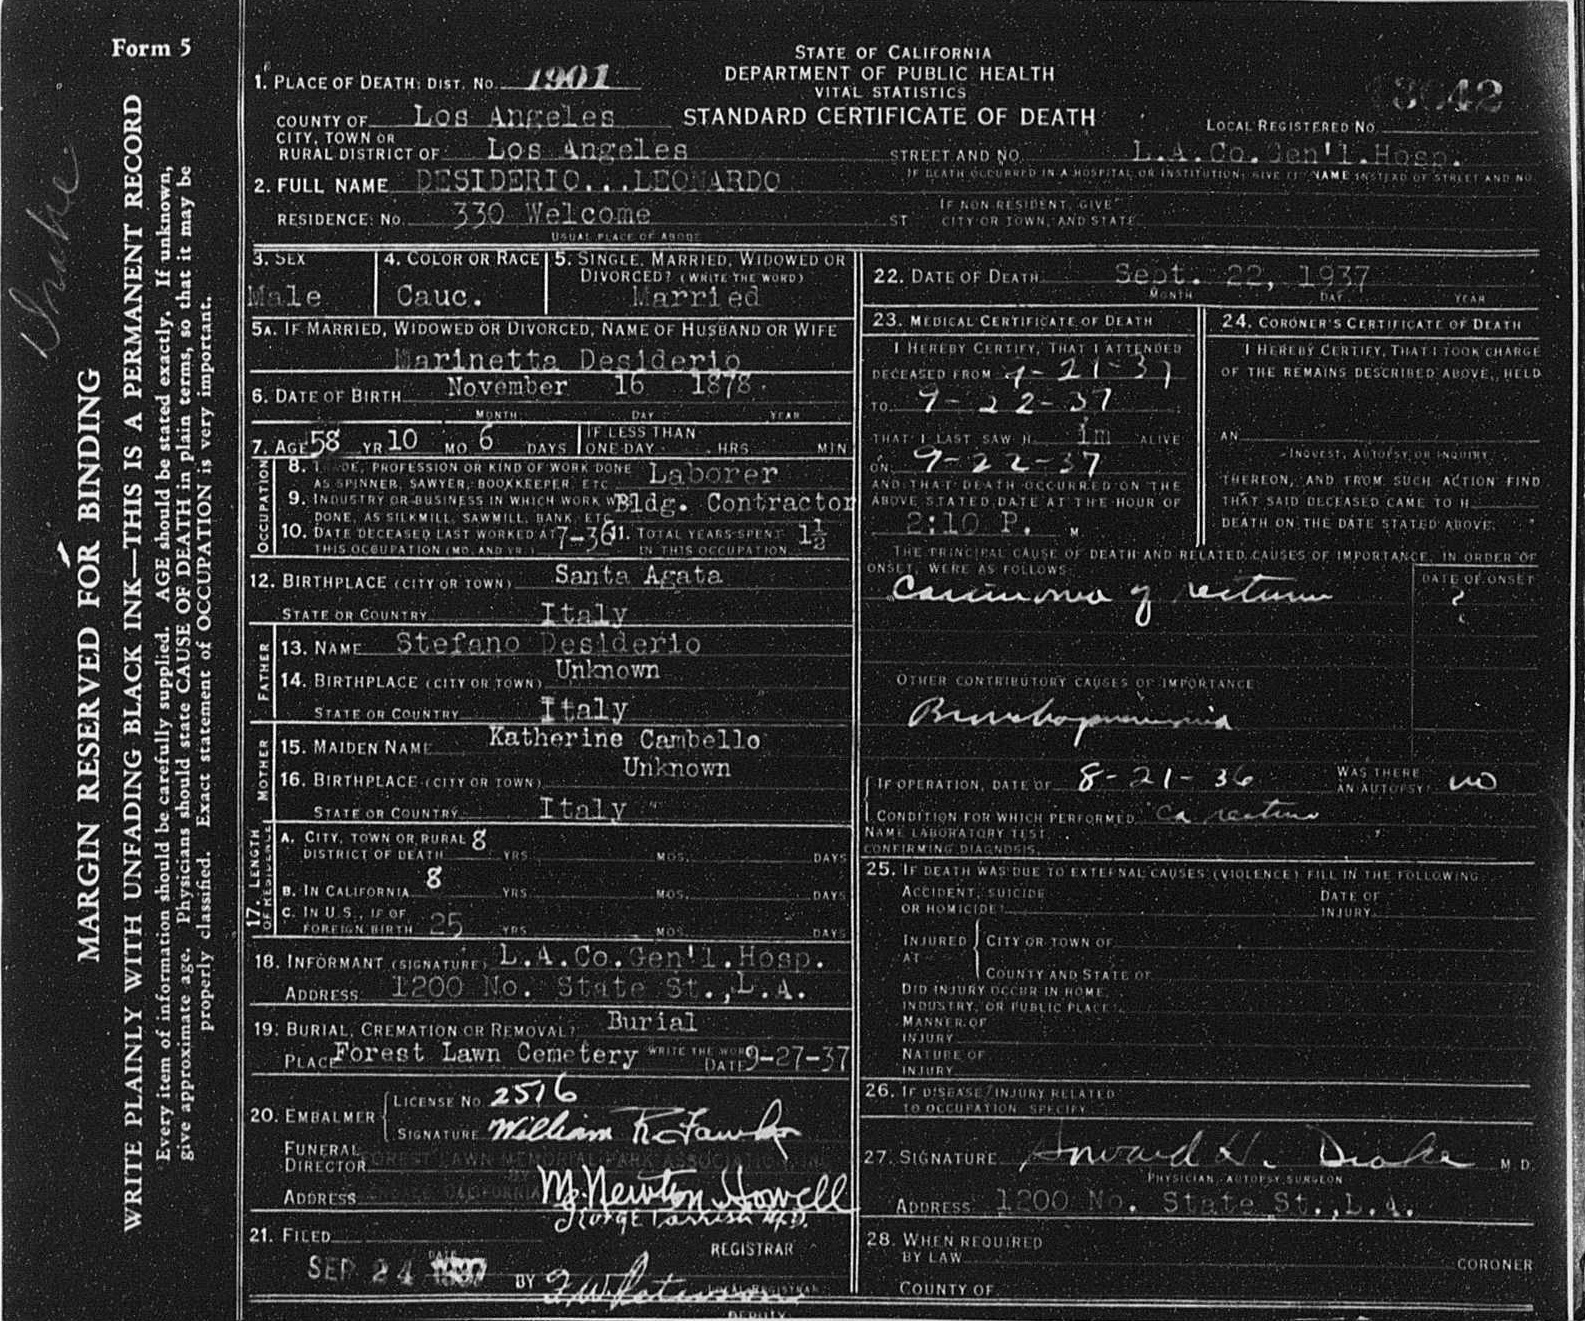 Form 5
MARGIN RESERVED FOR BINDING
WRITE PLAINLY WITH UNFADING BLACK INK—THIS IS A PERMANENT RECORD
Every item of information should be carefully supplied. AGE should be stated exactly. If unknown,
give approximate age. Physicians should state CAUSE OF DEATH in plain terms, so that it may be
properly classified. Exact statement of OCCUPATION is very important.
Drake
STATE OF CALIFORNIA
DEPARTMENT OF PUBLIC HEALTH
VITAL STATISTICS
STANDARD CERTIFICATE OF DEATH
1. PLACE OF DEATH: DIST. No. 1901
LOCAL REGISTERED No
COUNTY OF Los Angeles
CITY, TOWN OR
RURAL DISTRICT OF Los Angeles
STREET AND NO. L.A.Co.Gen'l.Hosp.
IF DEATH OCCURRED IN A HOSPITAL OR INSTITUTION, GIVE ITS NAME INSTEAD OF STREET AND NO.
2. FULL NAME DESIDERIO...LEONARDO
RESIDENCE: No. 330 Welcome ST
IF NON RESIDENT, GIVE
CITY OR TOWN, AND STATE
USUAL PLACE OF ABODE
3. SEX
Male
4. COLOR OR RACE
Cauc.
5. SINGLE, MARRIED, WIDOWED OR
DIVORCED? (WRITE THE WORD)
Married
5A. IF MARRIED, WIDOWED OR DIVORCED, NAME OF HUSBAND OR WIFE
Marinetta Desiderio
6. DATE OF BIRTH November 16 1878
MONTH DAY YEAR
7. AGE 58 YR 10 MO 6 DAYS
IF LESS THAN
ONE DAY HRS MIN
OCCUPATION
8. TRADE, PROFESSION OR KIND OF WORK DONE
AS SPINNER, SAWYER, BOOKKEEPER, ETC Laborer
9. INDUSTRY OR BUSINESS IN WHICH WORK W Bldg. Contractor
DONE, AS SILKMILL, SAWMILL, BANK, ETC
10. DATE DECEASED LAST WORKED AT 7-36
THIS OCCUPATION (MO. AND YR.)
11. TOTAL YEARS SPENT
IN THIS OCCUPATION 1½
12. BIRTHPLACE (CITY OR TOWN) Santa Agata
STATE OR COUNTRY Italy
FATHER
13. NAME Stefano Desiderio
14. BIRTHPLACE (CITY OR TOWN) Unknown
STATE OR COUNTRY Italy
MOTHER
15. MAIDEN NAME Katherine Cambello
16. BIRTHPLACE (CITY OR TOWN) Unknown
STATE OR COUNTRY Italy
17. LENGTH
OF RESIDENCE
A. CITY, TOWN OR RURAL 8
DISTRICT OF DEATH YRS. MOS. DAYS
B. IN CALIFORNIA 8 YRS. MOS. DAYS
C. IN U.S., IF OF
FOREIGN BIRTH 25 YRS. MOS. DAYS
18. INFORMANT (SIGNATURE) L.A.Co.Gen'l.Hosp.
ADDRESS 1200 No. State St.,L.A.
19. BURIAL, CREMATION OR REMOVAL? Burial
WRITE THE WORD
PLACE Forest Lawn Cemetery DATE 9-27-37
20. EMBALMER
LICENSE No. 2516
SIGNATURE William R. Fawks
FUNERAL
DIRECTOR FOREST LAWN MEMORIAL PARK ASSOCIATION, IN
BY
ADDRESS CALIFORNIA M. Newton Howell
George Parrish M.D.
21. FILED
REGISTRAR
SEP 24 1937
DATE
BY F.W. Peterson
LOCAL REGISTRAR
DEPUTY
22. DATE OF DEATH Sept. 22, 1937
MONTH DAY YEAR
23. MEDICAL CERTIFICATE OF DEATH
I HEREBY CERTIFY, THAT I ATTENDED
DECEASED FROM 9-21-37
TO 9-22-37
THAT I LAST SAW H im ALIVE
ON 9-22-37
AND THAT DEATH OCCURRED ON THE
ABOVE STATED DATE AT THE HOUR OF
2:10 P. M
24. CORONER'S CERTIFICATE OF DEATH
I HEREBY CERTIFY, THAT I TOOK CHARGE
OF THE REMAINS DESCRIBED ABOVE, HELD
AN
INQUEST, AUTOPSY OR INQUIRY
THEREON, AND FROM SUCH ACTION FIND
THAT SAID DECEASED CAME TO H
DEATH ON THE DATE STATED ABOVE.
THE PRINCIPAL CAUSE OF DEATH AND RELATED CAUSES OF IMPORTANCE, IN ORDER OF
ONSET, WERE AS FOLLOWS:
DATE OF ONSET
Carcinoma of rectum ?
OTHER CONTRIBUTORY CAUSES OF IMPORTANCE
Bronchopneumonia
IF OPERATION, DATE OF 8-21-36
WAS THERE
AN AUTOPSY? no
CONDITION FOR WHICH PERFORMED Ca rectum
NAME LABORATORY TEST
CONFIRMING DIAGNOSIS
25. IF DEATH WAS DUE TO EXTERNAL CAUSES (VIOLENCE) FILL IN THE FOLLOWING:
ACCIDENT, SUICIDE
OR HOMICIDE?
DATE OF
INJURY
INJURED
AT
CITY OR TOWN OF
COUNTY AND STATE OF
DID INJURY OCCUR IN HOME,
INDUSTRY, OR PUBLIC PLACE?
MANNER OF
INJURY
NATURE OF
INJURY
26. IF DISEASE/INJURY RELATED
TO OCCUPATION, SPECIFY
27. SIGNATURE Howard H. Drake M.D.
PHYSICIAN, AUTOPSY SURGEON
ADDRESS 1200 No. State St.,L.A.
28. WHEN REQUIRED
BY LAW CORONER
COUNTY OF